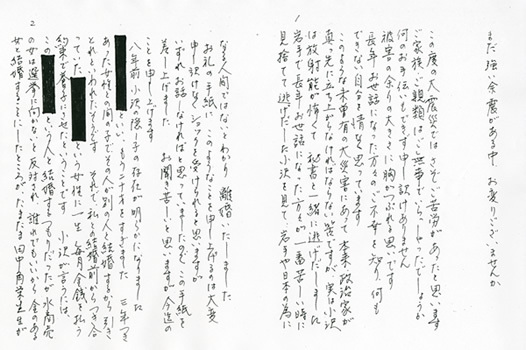 1
まだ強い余震がある中、お変りございませんか
この度の大震災ではさぞご苦労があったと思います
ご家族、ご親類はご無事でいらっしゃったでしょうか
何のお手伝いもできず申し訳ありません
被害の余りの大きさに胸がつぶれる思いです
長年お世話になった方々のご不幸を知り何も
できない自分を情けなく思っています
このような未曾有の大災害にあって本来、政治家が
真っ先に立ち上がらなければならない筈ですが、実は小沢
は放射能が怖くて秘書と一緒に逃げだしました
岩手で長年お世話になった方々が一番苦しい時に
見捨てて逃げだした小沢を見て、岩手や日本の為に
2
なる人間ではないとわかり離婚いたしました
お礼の手紙にこのようなことを申し上げるのは大変
申し訳けなくショックを受けられると思いますが
いずれお話しなければと思っていましたのでこの手紙を
差し上げました。お聞き苦しいと思いますが今迄の
ことを申し上げます
八年前小沢の隠し子の存在が明らかになりました
といい、もう二十才をすぎました。三年つき
あった女性との間の子でその人が別の人と結婚するから引き
とれといわれたそうです。それで私との結婚前からつき合
っていた という女性に一生毎月金銭を払う
約束で養子にさせたということです。小沢が言うには、
この という人と結婚するつもりだったが水商売
の女は選挙に向かないと反対され、誰れでもいいから金のある
女と結婚することにしたところが、たまたま田中角栄先生が